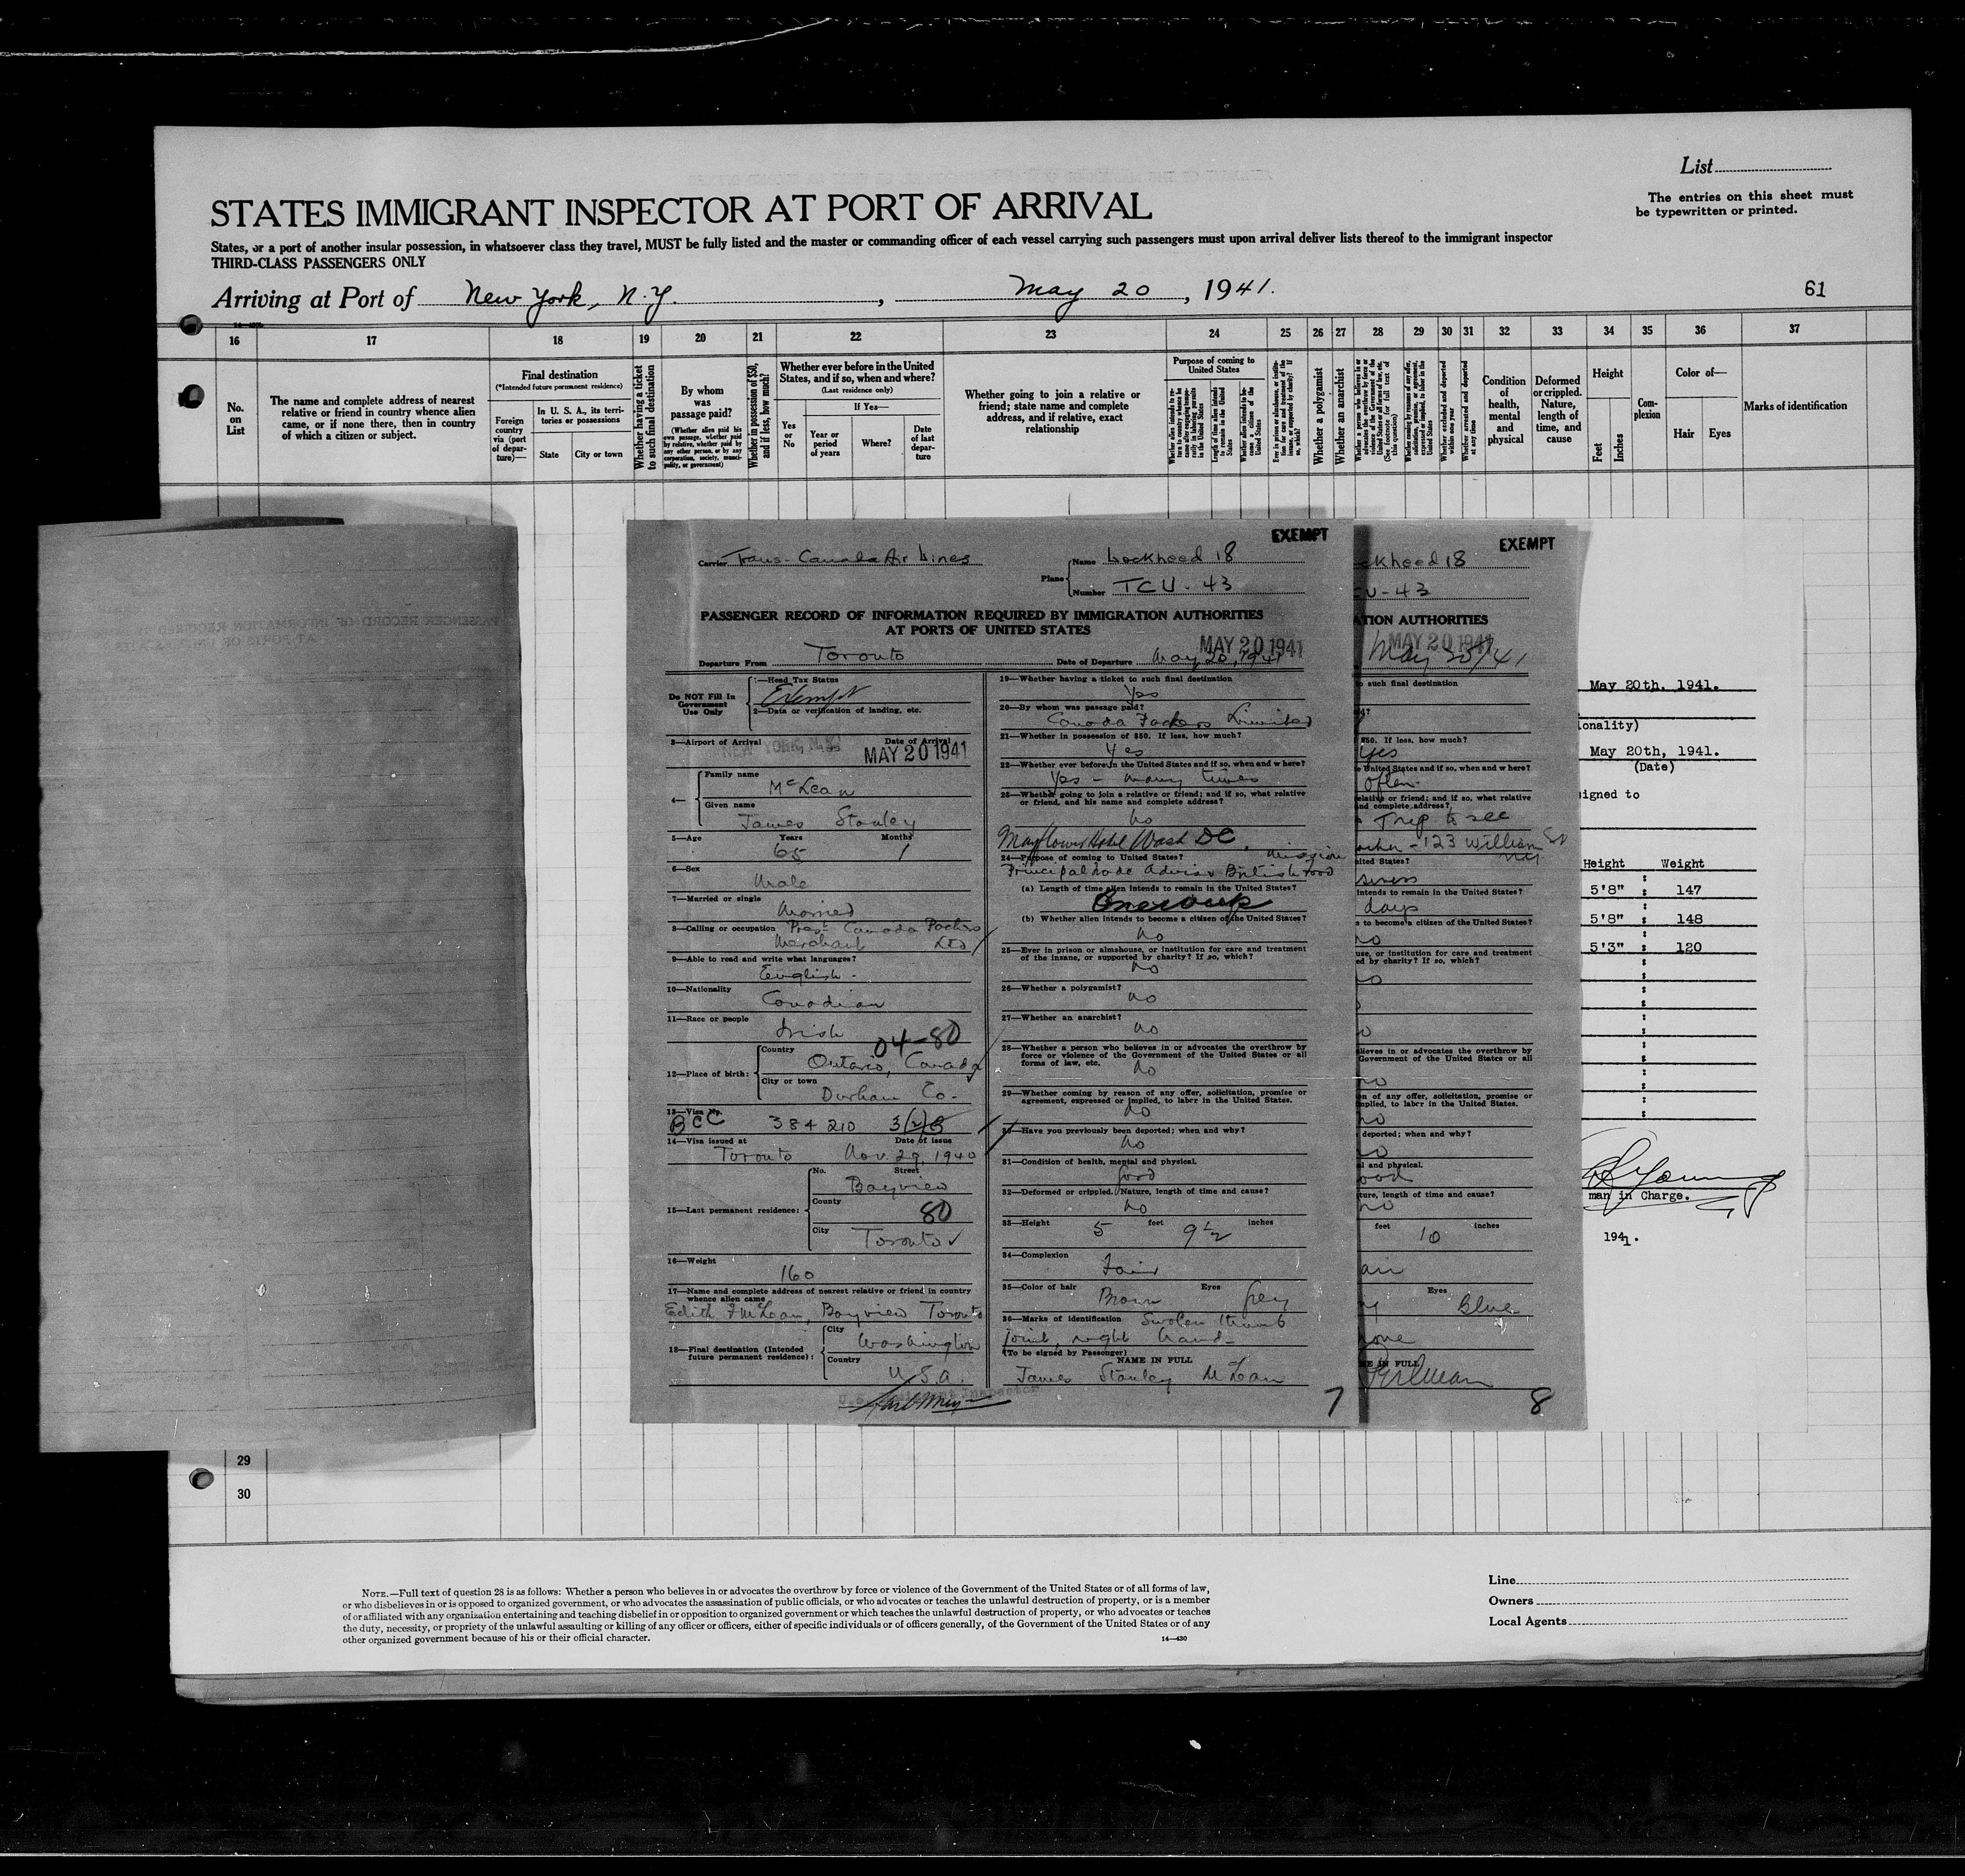 List
The entries on this sheet must
be typewritten or printed.
STATES IMMIGRANT INSPECTOR AT PORT OF ARRIVAL
States, or a port of another insular possession, in whatsoever class they travel, MUST be fully listed and the master or commanding officer of each vessel carrying such passengers must upon arrival deliver lists thereof to the immigrant inspector
THIRD-CLASS PASSENGERS ONLY
Arriving at Port of New York, N.Y., May 20, 1941.
61
16 17 18 19 20 21 22 23 24 25 26 27 28 29 30 31 32 33 34 35 36 37
No.
on
List
The name and complete address of nearest
relative or friend in country whence alien
came, or if none there, then in country
of which a citizen or subject.
Final destination
(*Intended future permanent residence)
Foreign
country
via (port
of depar-
ture)—
In U. S. A., its terri-
tories or possessions
State
City or town
Whether having a ticket
to such final destination
By whom
was
passage paid?
(Whether alien paid his
own passage, whether paid
by relative, whether paid by
any other person, or by any
corporation, society, munici-
pality, or government)
Whether in possession of $50,
and if less, how much?
Whether ever before in the United
States, and if so, when and where?
(Last residence only)
If Yes—
Yes
or
No
Year or
period
of years
Where?
Date
of last
depar-
ture
Whether going to join a relative or
friend; state name and complete
address, and if relative, exact
relationship
Purpose of coming to
United States
Length of time alien intends
to remain in the United
States
Whether a polygamist
Whether an anarchist
Whether excluded and deported
within one year
Whether arrested and deported
at any time
Condition
of
health,
mental
and
physical
Deformed
or crippled.
Nature,
length of
time, and
cause
Height
Feet
Inches
Com-
plexion
Color of—
Hair
Eyes
Marks of identification
EXEMPT
Carrier Trans-Canada Air Lines
Plane Name Lockheed 18
Number TCU-43
PASSENGER RECORD OF INFORMATION REQUIRED BY IMMIGRATION AUTHORITIES
AT PORTS OF UNITED STATES
MAY 20 1941
Departure From Toronto Date of Departure May 20, 1941
Do NOT Fill In
Government
Use Only
1—Head Tax Status
Exempt
2—Data or verification of landing, etc.
3—Airport of Arrival Date of Arrival
NEW YORK, N.Y. MAY 20 1941
4—
Family name
McLean
Given name
James Stanley
5—Age Years Months
65 1
6—Sex
Male
7—Married or single
Married
8—Calling or occupation Prest Canada Packers
Merchant LTD
9—Able to read and write what languages?
English -
10—Nationality
Canadian
11—Race or people
Irish
04-80
12—Place of birth:
Country
Ontario, Canada
City or town
Durham Co.
13—Visa No.
BCC 384210 3(2)
14—Visa issued at Date of issue
Toronto Nov. 29, 1940
15—Last permanent residence:
No. Street
Bayview
County
80
City
Toronto
16—Weight
160
17—Name and complete address of nearest relative or friend in country
whence alien came
Edith F McLean, Bayview Toronto
18—Final destination (Intended
future permanent residence):
City
Washington
Country
U.S.A.
19—Whether having a ticket to such final destination
Yes
20—By whom was passage paid?
Canada Packers Limited
21—Whether in possession of $50. If less, how much?
Yes
22—Whether ever before in the United States and if so, when and where?
Yes - many times
23—Whether going to join a relative or friend; and if so, what relative
or friend, and his name and complete address?
No
Mayflower Hotel Wash DC.
24—Purpose of coming to United States? mission
Principal trade Advisor British Food
(a) Length of time alien intends to remain in the United States?
One week
(b) Whether alien intends to become a citizen of the United States?
No
25—Ever in prison or almshouse, or institution for care and treatment
of the insane, or supported by charity? If so, which?
No
26—Whether a polygamist?
No
27—Whether an anarchist?
No
28—Whether a person who believes in or advocates the overthrow by
force or violence of the Government of the United States or all
forms of law, etc.
No
29—Whether coming by reason of any offer, solicitation, promise or
agreement, expressed or implied, to labor in the United States.
No
30—Have you previously been deported; when and why?
No
31—Condition of health, mental and physical.
Good
32—Deformed or crippled. Nature, length of time and cause?
No
33—Height feet inches
5 9½
34—Complexion
Fair
35—Color of hair Eyes
Brown Grey
36—Marks of identification Swolen thumb
joint, right hand-
(To be signed by Passenger)
NAME IN FULL
James Stanley McLean
7
EXEMPT
ckheed 18
U-43
TION AUTHORITIES
MAY 20 1941
May 20/41
such final destination
$50. If less, how much?
Yes
United States and if so, when and where?
Often
relative or friend; and if so, what relative
and complete address?
Trip to see
123 William St
NY
ited States?
siness
intends to remain in the United States?
days
to become a citizen of the United States?
no
use, or institution for care and treatment
ed by charity? If so, which?
no
no
lieves in or advocates the overthrow by
Government of the United States or all
no
on of any offer, solicitation, promise or
mplied, to labor in the United States.
no
deported; when and why?
no
al and physical.
ood
ture, length of time and cause?
no
feet inches
10
air
Eyes
Blue
none
ME IN FULL
8
May 20th, 1941.
ionality)
May 20th, 1941.
(Date)
igned to
Height Weight
5'8" : 147
5'8" : 148
5'3" : 120
man in Charge.
1941.
29
30
NOTE.—Full text of question 28 is as follows: Whether a person who believes in or advocates the overthrow by force or violence of the Government of the United States or of all forms of law,
or who disbelieves in or is opposed to organized government, or who advocates the assassination of public officials, or who advocates or teaches the unlawful destruction of property, or is a member
of or affiliated with any organization entertaining and teaching disbelief in or opposition to organized government or which teaches the unlawful destruction of property, or who advocates or teaches
the duty, necessity, or propriety of the unlawful assaulting or killing of any officer or officers, either of specific individuals or of officers generally, of the Government of the United States or of any
other organized government because of his or their official character.
14—430
Line
Owners
Local Agents